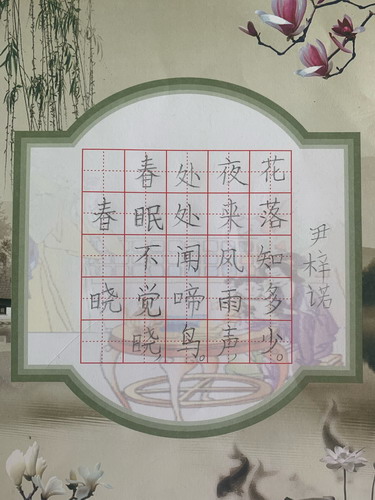 春晓
春眠不觉晓
处处闻啼鸟。
夜来风雨声
花落知多少。
尹梓诺